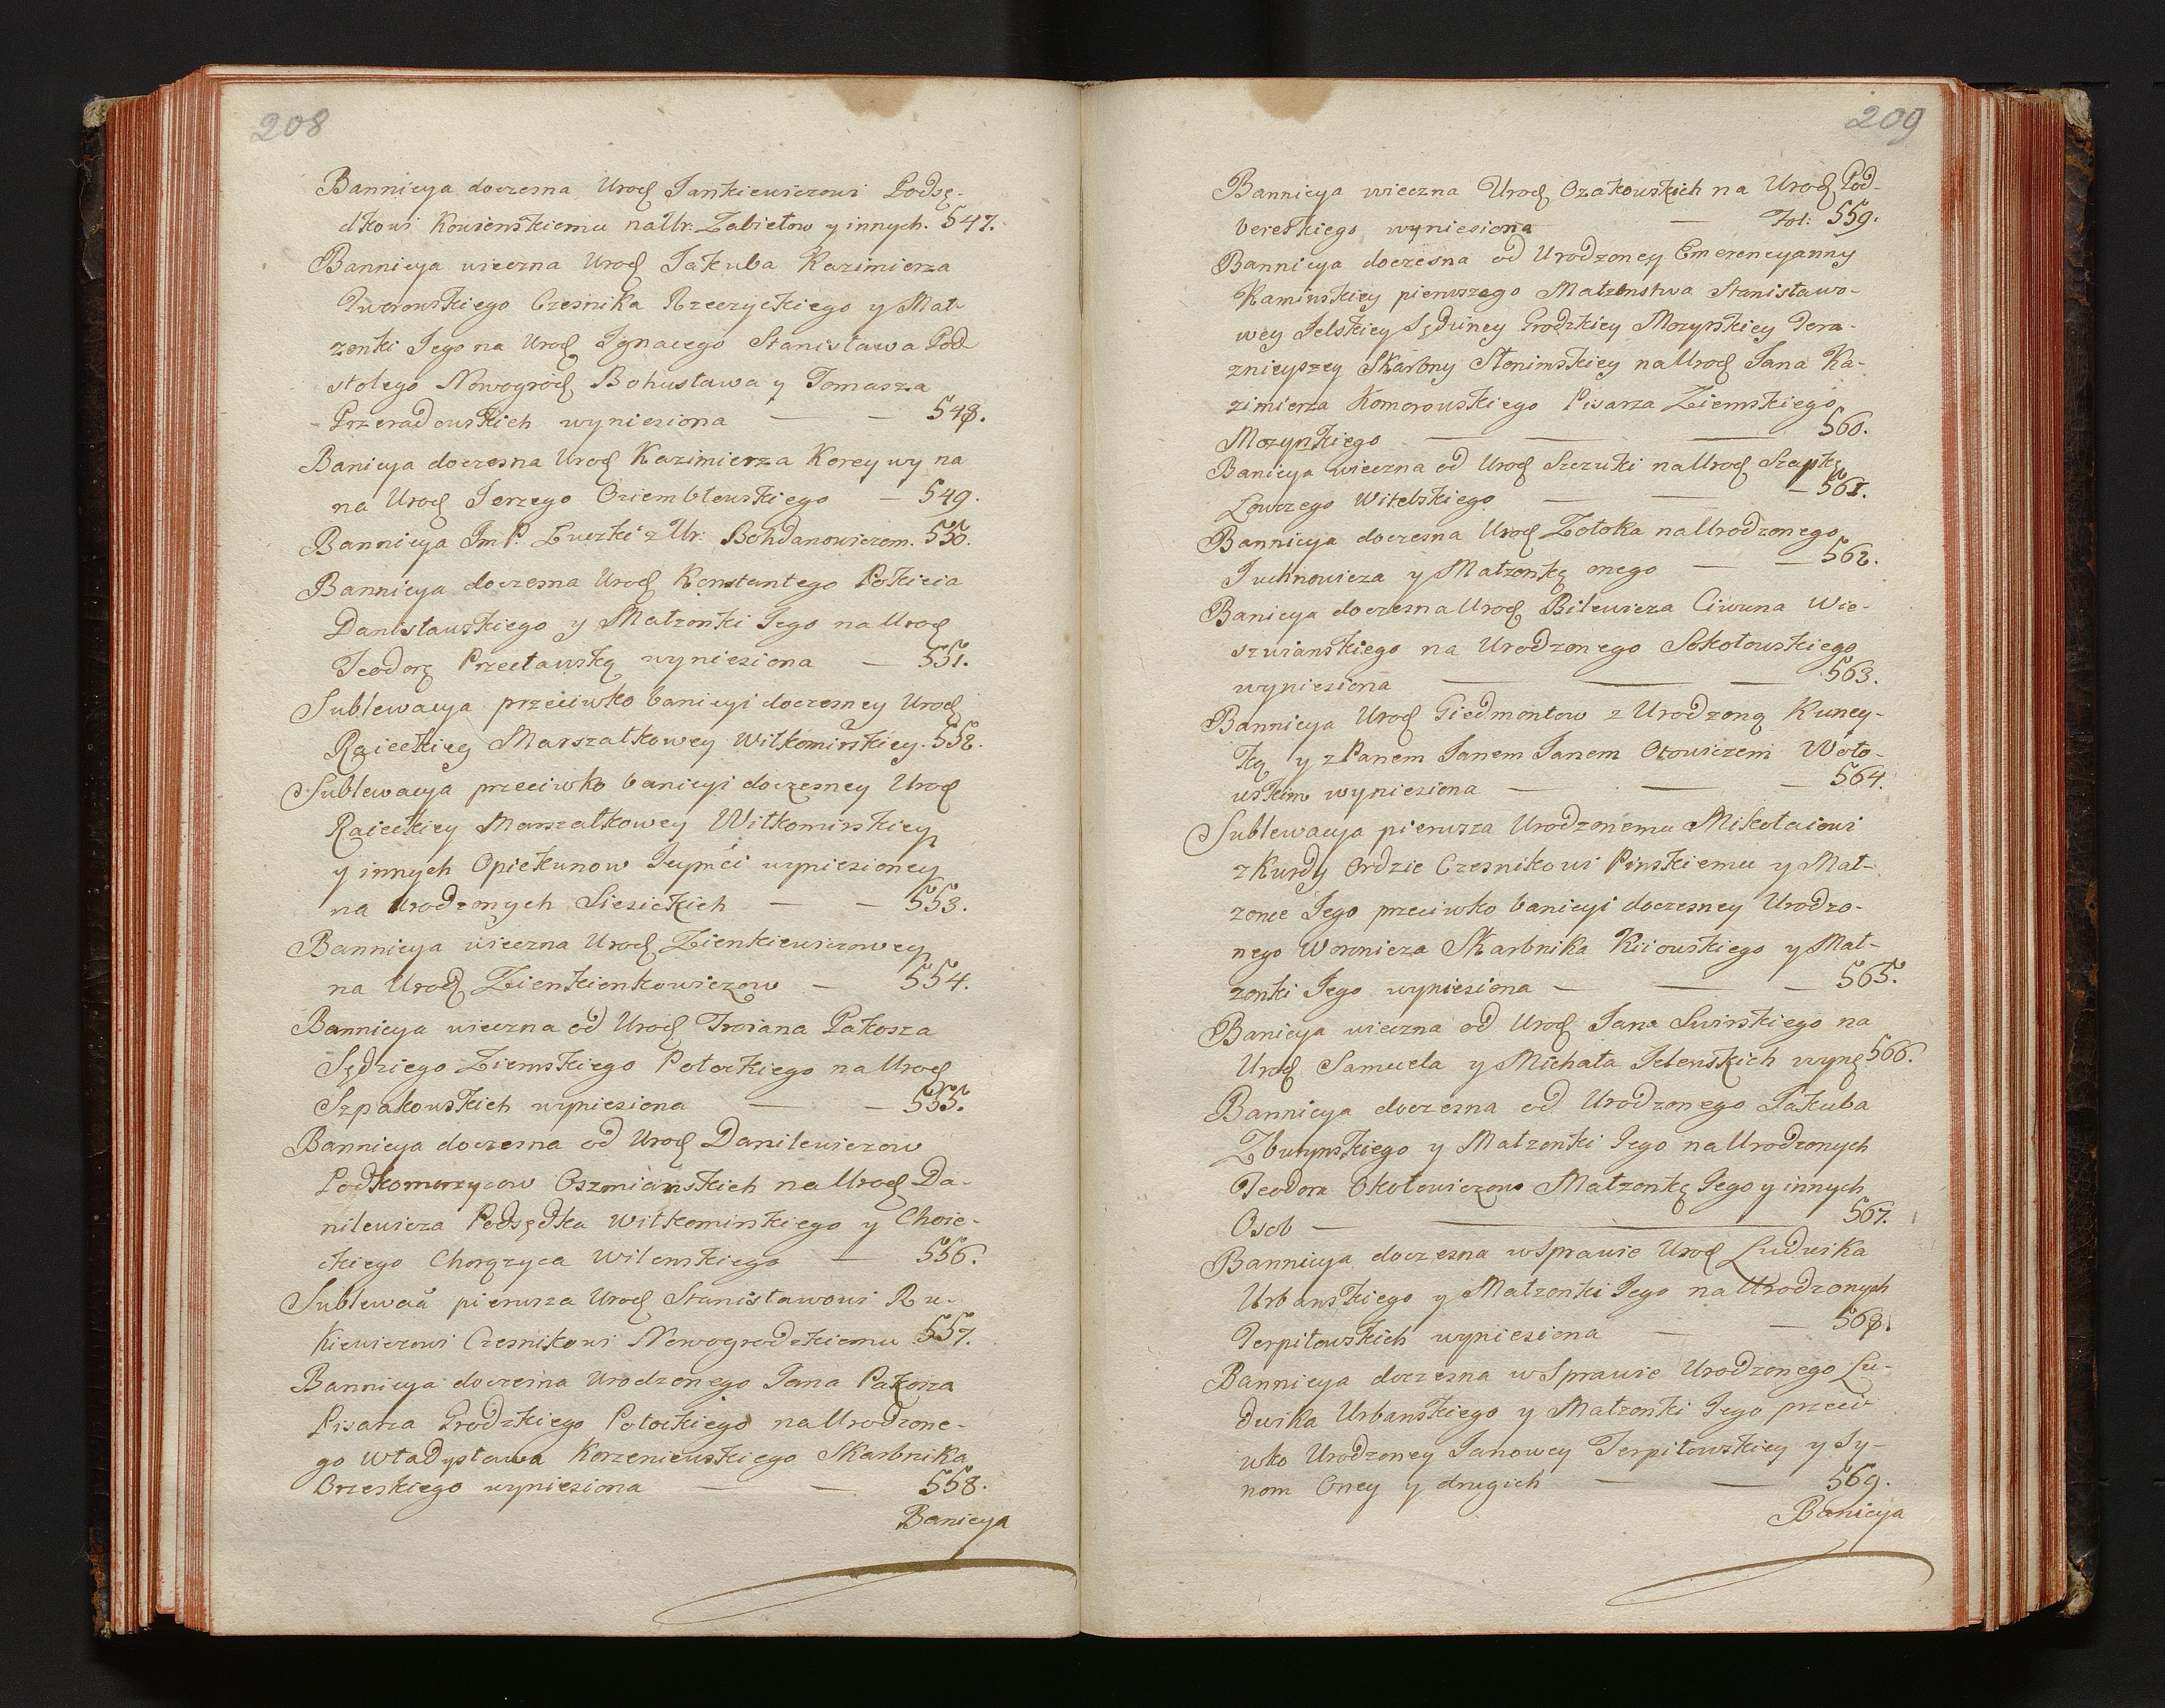 208
Bannicya doczesna Urod Jankiewiczowi Podsę-
dkowi Kowienskiemu na Ur. Zabiełow y innych. 547.
Bannicya wieczna Urod Jakuba Kazimierza
Dworowskiego Czesnika Rzeczyckiego y Mał-
zonki Jego na Urod Ignacego Stanisława Pod
stolego Nowogrod Bohusława y Tomasza
Przeradowskich wyniesiona — — 548.
Banicya doczesna Urod Kazimierza Korey wy na
na Urod Jerzego Oziembłowskiego — 549.
Bannicya ImP. Łuczki z Ur: Bohdanowiczem. 550.
Bannicya doczesna Urod Konstantego Pokicia
Danisławskiego y Małzonki Jego na Urod
Teodorę Przecławską wyniesiona — 551.
Sublewacya przeciwko banicyi doczesney Urod
Raieckiey Marszałkowey Wiłkomirskiey. 552.
Sublewacya przeciwko banicyi doczesney Urod
Raieckiey Marszałkowey Wiłkomirskiey
y innych Opiekunow Jeymci wyniesioney
na Urodzonych Siesickich — — 553.
Bannicya wieczna Urod Zienkiewiczowey
na Urod Zienkienkowiczow — 554.
Bannicya wieczna od Urod Troiana Pakosza
Sędziego Ziemskiego Połockiego na Urod
Szpakowskich wyniesiona — — 555.
Bannicya doczesna od Urod Danilewiczow
Podkomorzycow Oszmiańskich na Urod Da-
nilewicza Podsędka Wiłkomirskiego y Choie-
ckiego Chorązyca Wilenskiego — 556.
Sublewaa pierwsza Urod Stanisławowi Ru-
kiewiczowi Czesnikowi Nowogrodzkiemu 557.
Bannicya doczesna Urodzonego Jana Pakosza
Pisarza Grodzkiego Połockiego na Urodzone-
go Władysława Korzeniewskiego Skarbnika
Brzeskiego wyniesiona — — 558.
Banicya
209
Bannicya wieczna Urod Ozakowskich na Urod Pod-
bereskiego wyniesiona — Fol: 559.
Bannicya doczesna od Urodzoney Emerencyanny
Kaminskiey pierwszego Małzenstwa Stanisławo-
wey Jelskiey Sędziney Grodzkiey Mozyrskiey Tera-
znieyszey Skarbny Słonimskiey na Urod Jana Ka-
zimierza Komorowskiego Pisarza Ziemskiego
Mozyrskiego — — — 560.
Banicya wieczna od Urod Szczuki na Urod Szapkę
Łowczego Witebskiego — — — 561.
Bannicya doczesna Urod Zołoka na Urodzonego
Juchnowicza y Małzonkę onego — — 562.
Banicya doczesna Urod Bilewicza Ciwuna Wie-
szwianskiego na Urodzonego Sokołowskiego
wyniesiona — — — 563.
Bannicya Urod Giedmontow z Urodzoną Kuncy-
ką y z Panem Janem Janem Otowiczem Woło-
uskim wyniesiona — — — 564.
Sublewacya pierwsza Urodzonemu Mikołaiowi
z Kurdy Ordzie Czesnikowi Pinskiemu y Mał-
zonce Jego przeciwko banicyi doczesney Urodzo-
nego Woronicza Skarbnika Kiiowskiego y Mał-
zonki Jego wyniesiona — — — 565.
Banicya wieczna od Urod Jana Swirskiego na
Urod Samuela y Michała Jelenskich wynę 566.
Bannicya doczesna od Urodzonego Jakuba
Zbutynskiego y Małzonki Jego na Urodzonych
Teodora Okołowiczowo Małzonkę Jego y innych
Osob — — 567.
Bannicya doczesna w Sprawie Urod Ludwika
Urbanskiego y Małzonki Jego na Urodzonych
Terpiłowskich wyniesiona — — 568.
Bannicya doczesna w Sprawie Urodzonego Lu-
dwika Urbanskiego y Małzonki Jego przeci-
wko Urodzoney Janowey Terpiłowskiey y Sy-
nom Oney y drugich — — 569.
Banicya